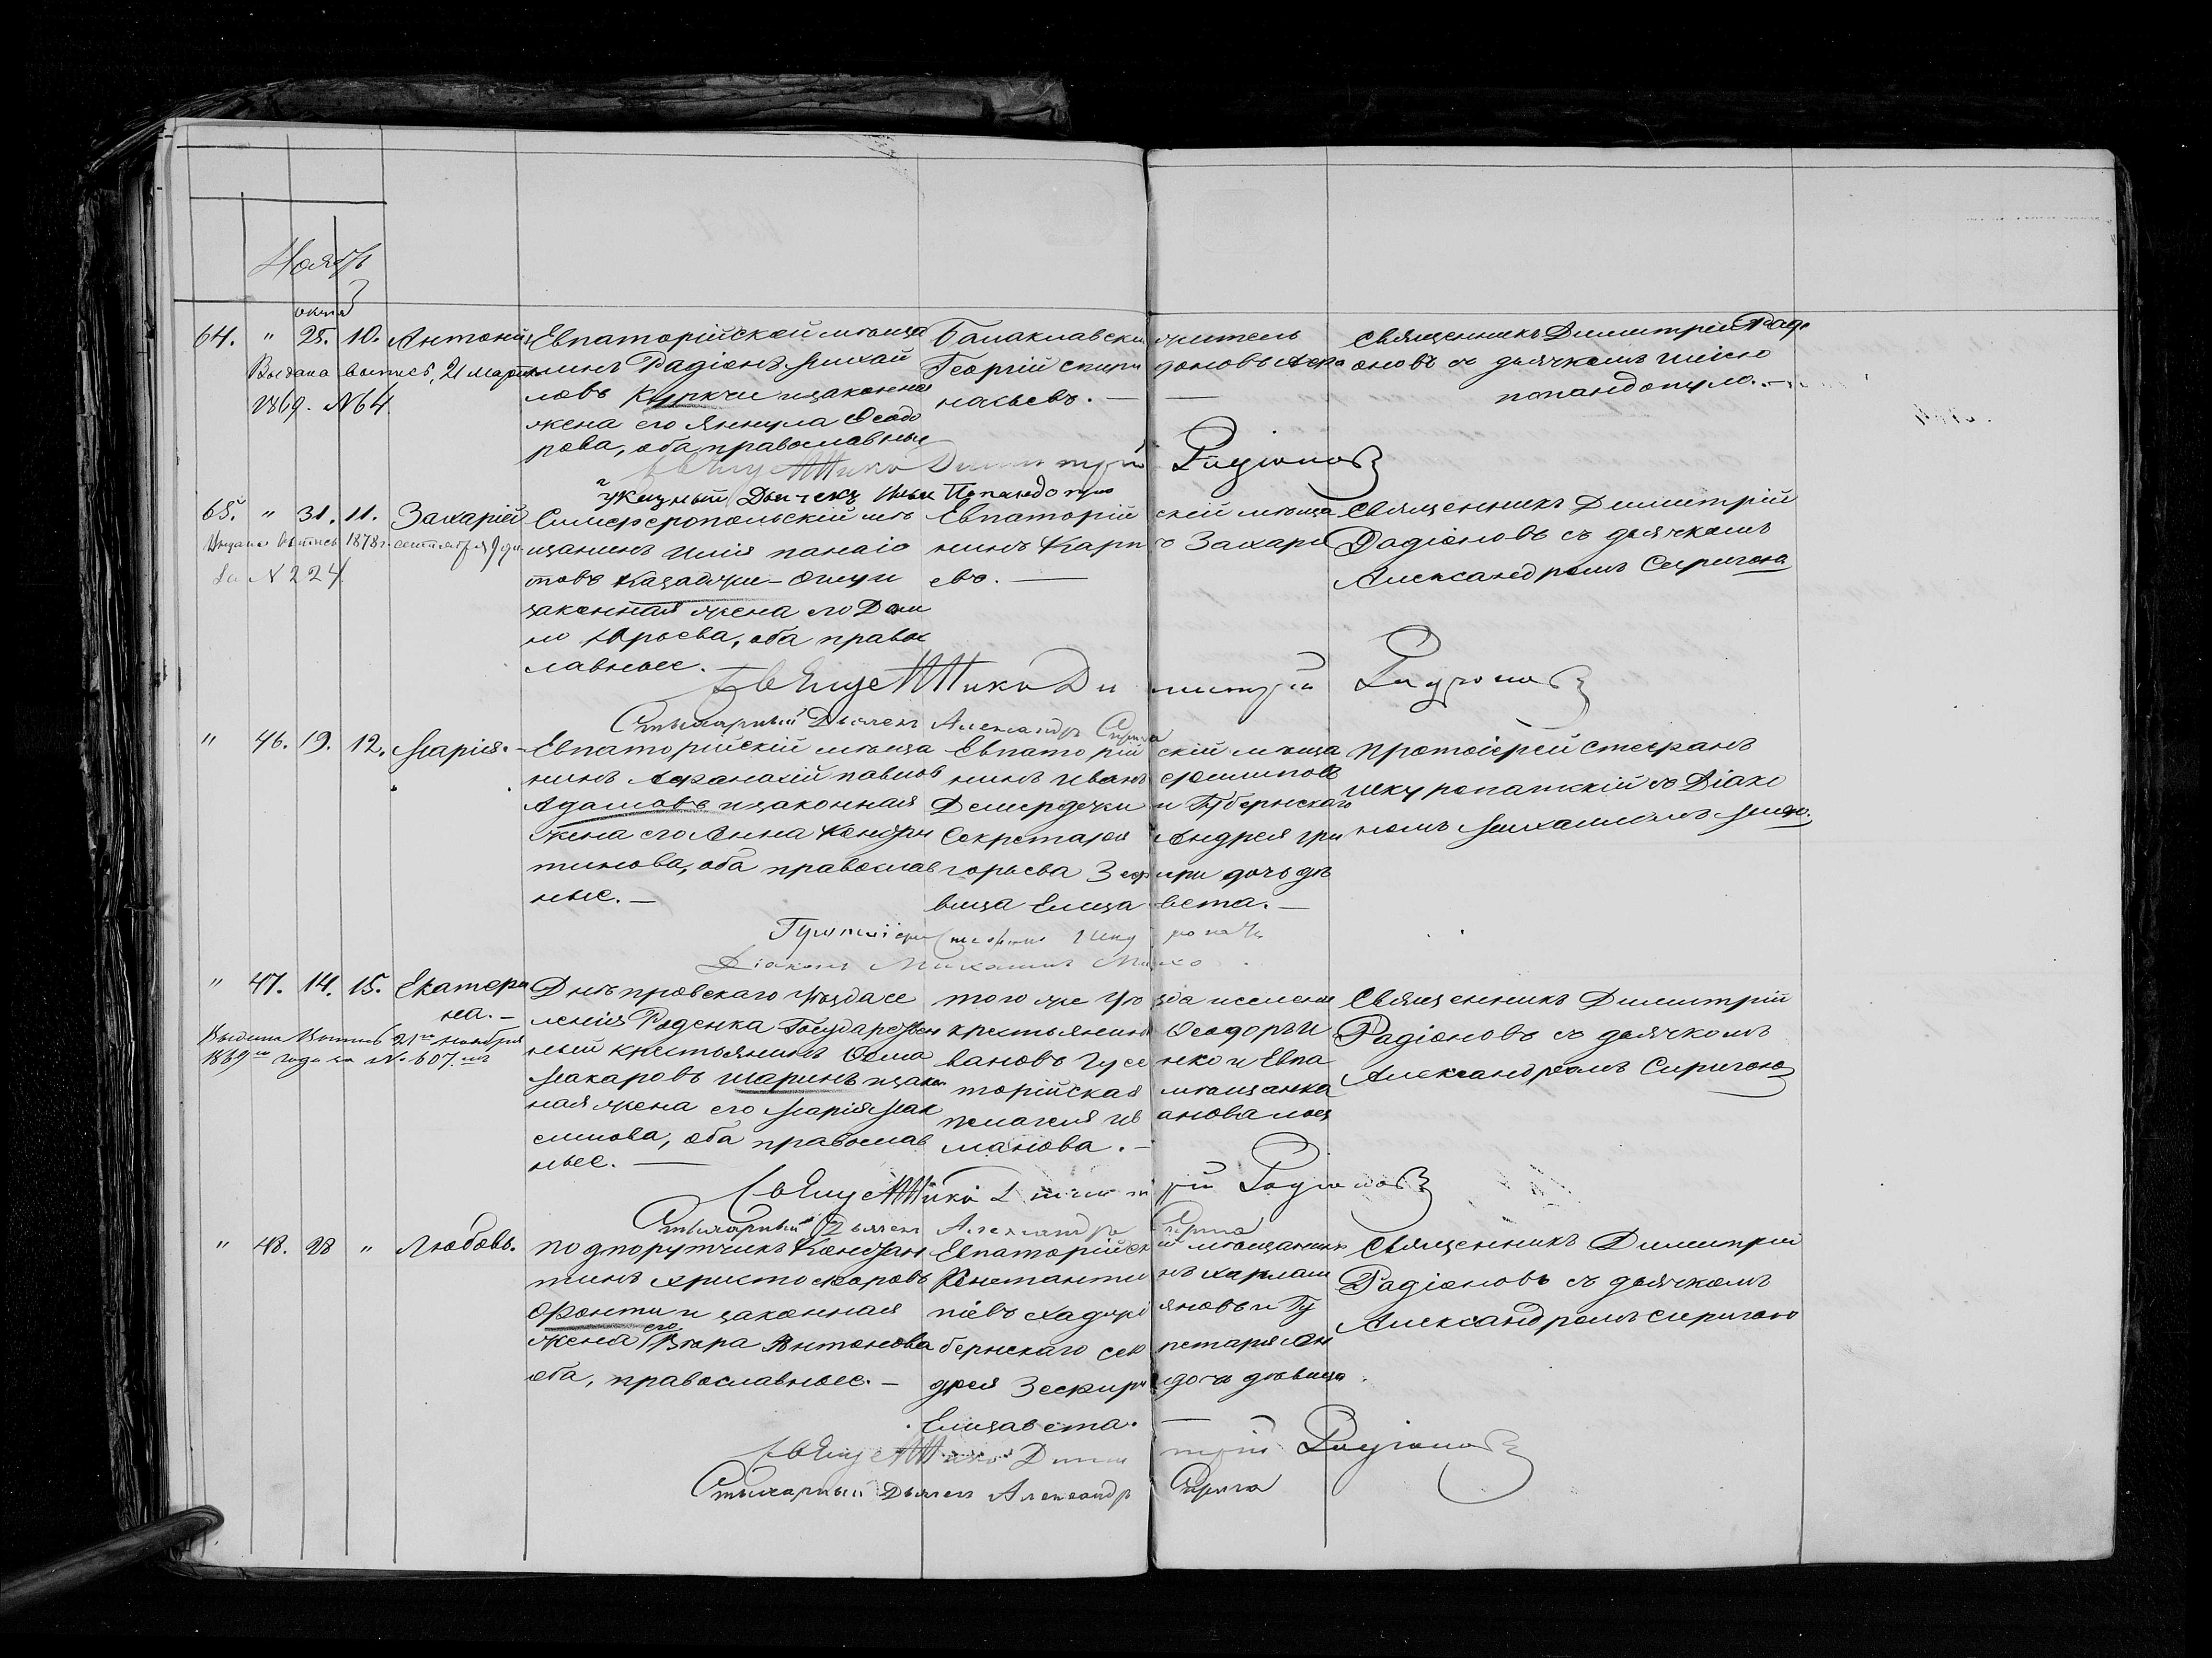 Ноябрь
октяб
64. " 25. 10. Антоній
Выдана выпись, 21 марта
1869. №64
Евпаторійской мѣща
нинъ Радіонъ Михай
ловъ Куркчи и законная
жена его Яннула Ѳеодо
рова, оба православные
Балаклавскій житель
Георгій Спиридоновъ Аѳа
насьевъ. —
Священникъ Димитрій Ради
оновъ съ дьячкомъ Иліею
Попандопуло. —
Священникъ Димитрій Радіоновъ
Дьячекъ Илья Попандопуло
65. " 31. 11. Захарій
Выдана выпись 1878 г. сентября 9 дня
за №224
Симферопольскій мѣ
щанинъ Илія Панаіо
товъ Казаджи-Оглу и
законная жена его Дом
на Юрьева, оба правос
лавные. —
Евпаторійскій мѣща
нинъ Карпъ Захарь
евъ. —
Священникъ Димитрій
Радіоновъ съ дьячкомъ
Александромъ Сиригою
Священникъ Димитрій Радіоновъ
Стихарный Дьячекъ Александръ Сирига
" 46. 19. 12. Марія. —
Евпаторійскій мѣща
нинъ Аѳанасій Павлов
Адамовъ и законная
жена его Анна Констан
тинова, оба православ
ные. —
Евпаторійскій мѣща
нинъ Иванъ Филиповъ
Демерджи и Губернскаго
Секретаря Андрея Гри
горьева Зефири дочь дѣ
вица Елизавета. —
Протоіерей Стефанъ
Шкуропатскій съ Діако
номъ Михаиломъ
Протоіерей Стефанъ
Діаконъ Михаилъ
" 47. 14. 15. Екатери
на. —
Выдана выпись 21го ноября
1869го года за №607.мъ
Днѣпровскаго уѣзда се
ленія Государствен
ный крестьянинъ Ѳома
Макаровъ Шаринъ и закон
ная жена его Марія Мак
симова, оба православ
ные. —
того же уѣзда и селенія
крестьянинъ Ѳеодоръ И
вановъ Гусенко и Евпа
торійская мѣщанка
Пелагея Иванова
манова. —
Священникъ Димитрій
Радіоновъ съ дьячкомъ
Александромъ Сиригою
Священникъ Димитрій Радіоновъ
Стихарный Дьячекъ Александръ Сирига
" 48. 28 " Любовь.
Подпорутчикъ Констан
тинъ Христофоровъ
Фонти и законная
жена его Вѣра Антонова
оба, православные. —
Евпаторійскій мѣщанинъ
Константинъ Харлам
піевъ Хаджи и Гу
бернскаго секретаря Ан
дрея Зефири дочь дѣвица
Елизавета. —
Священникъ Димитрій
Радіоновъ съ дьячкомъ
Александромъ Сиригою
Священникъ Димитрій Радіоновъ
Стихарный Дьячекъ Александръ Сирига